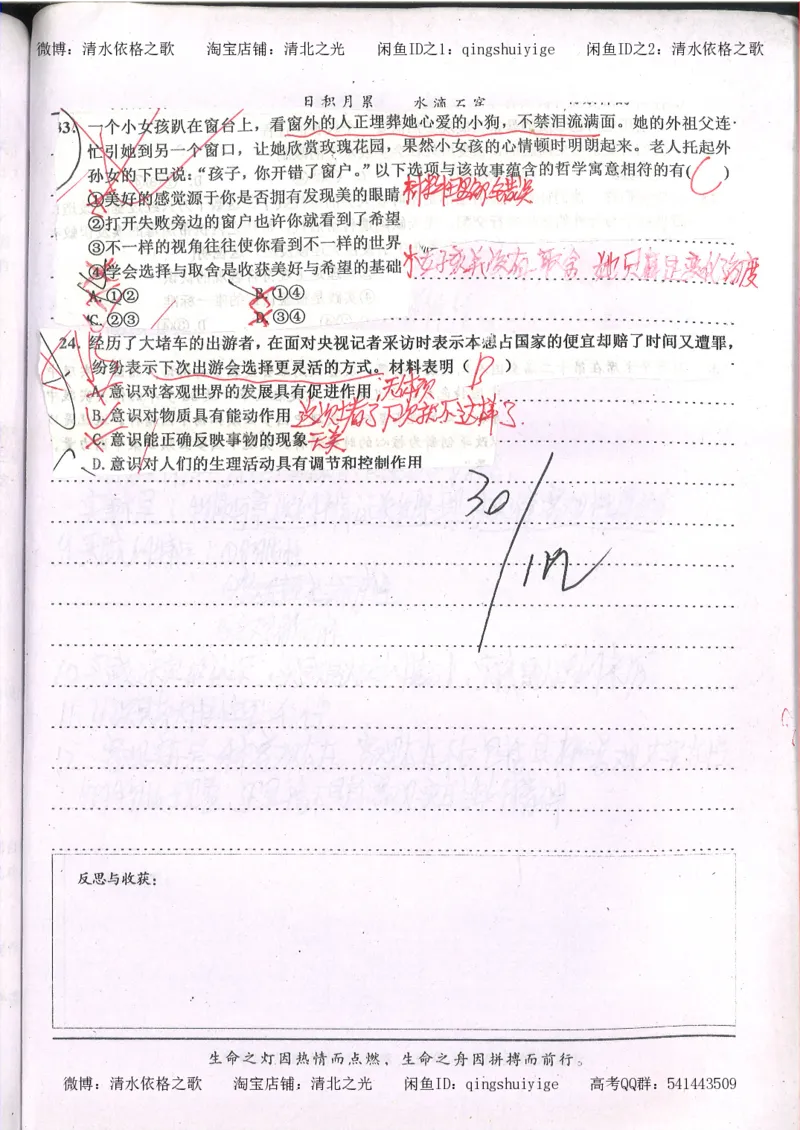 微博：清水依格之歌 淘宝店铺：清北之光 闲鱼ID之1：qingshuiyige 闲鱼ID之2：清水依格之歌
日积月累 水滴石穿
33. 一个小女孩趴在窗台上，看窗外的人正埋葬她心爱的小狗，不禁泪流满面。她的外祖父连
忙引她到另一个窗口，让她欣赏玫瑰花园，果然小女孩的心情顿时明朗起来。老人托起外
孙女的下巴说：“孩子，你开错了窗户。”以下选项与该故事蕴含的哲学寓意相符的有( C )
①美好的感觉源于你是否拥有发现美的眼睛
②打开失败旁边的窗户也许你就看到了希望
③不一样的视角往往使你看到不一样的世界
④学会选择与取舍是收获美好与希望的基础 小女孩没有取舍 她只是
A. ①② B. ①④
C. ②③ D. ③④
24. 经历了大堵车的出游者，在面对央视记者采访时表示本想占国家的便宜却赔了时间又遭罪，
纷纷表示下次出游会选择更灵活的方式。材料表明（ B ）
A. 意识对客观世界的发展具有促进作用 无体现
B. 意识对物质具有能动作用 这次堵了下次我不这样了
C. 意识能正确反映事物的现象 无关
D. 意识对人们的生理活动具有调节和控制作用
30/
反思与收获：
生命之灯因热情而点燃，生命之舟因拼搏而前行。
微博：清水依格之歌 淘宝店铺：清北之光 闲鱼ID：qingshuiyige 高考QQ群：541443509